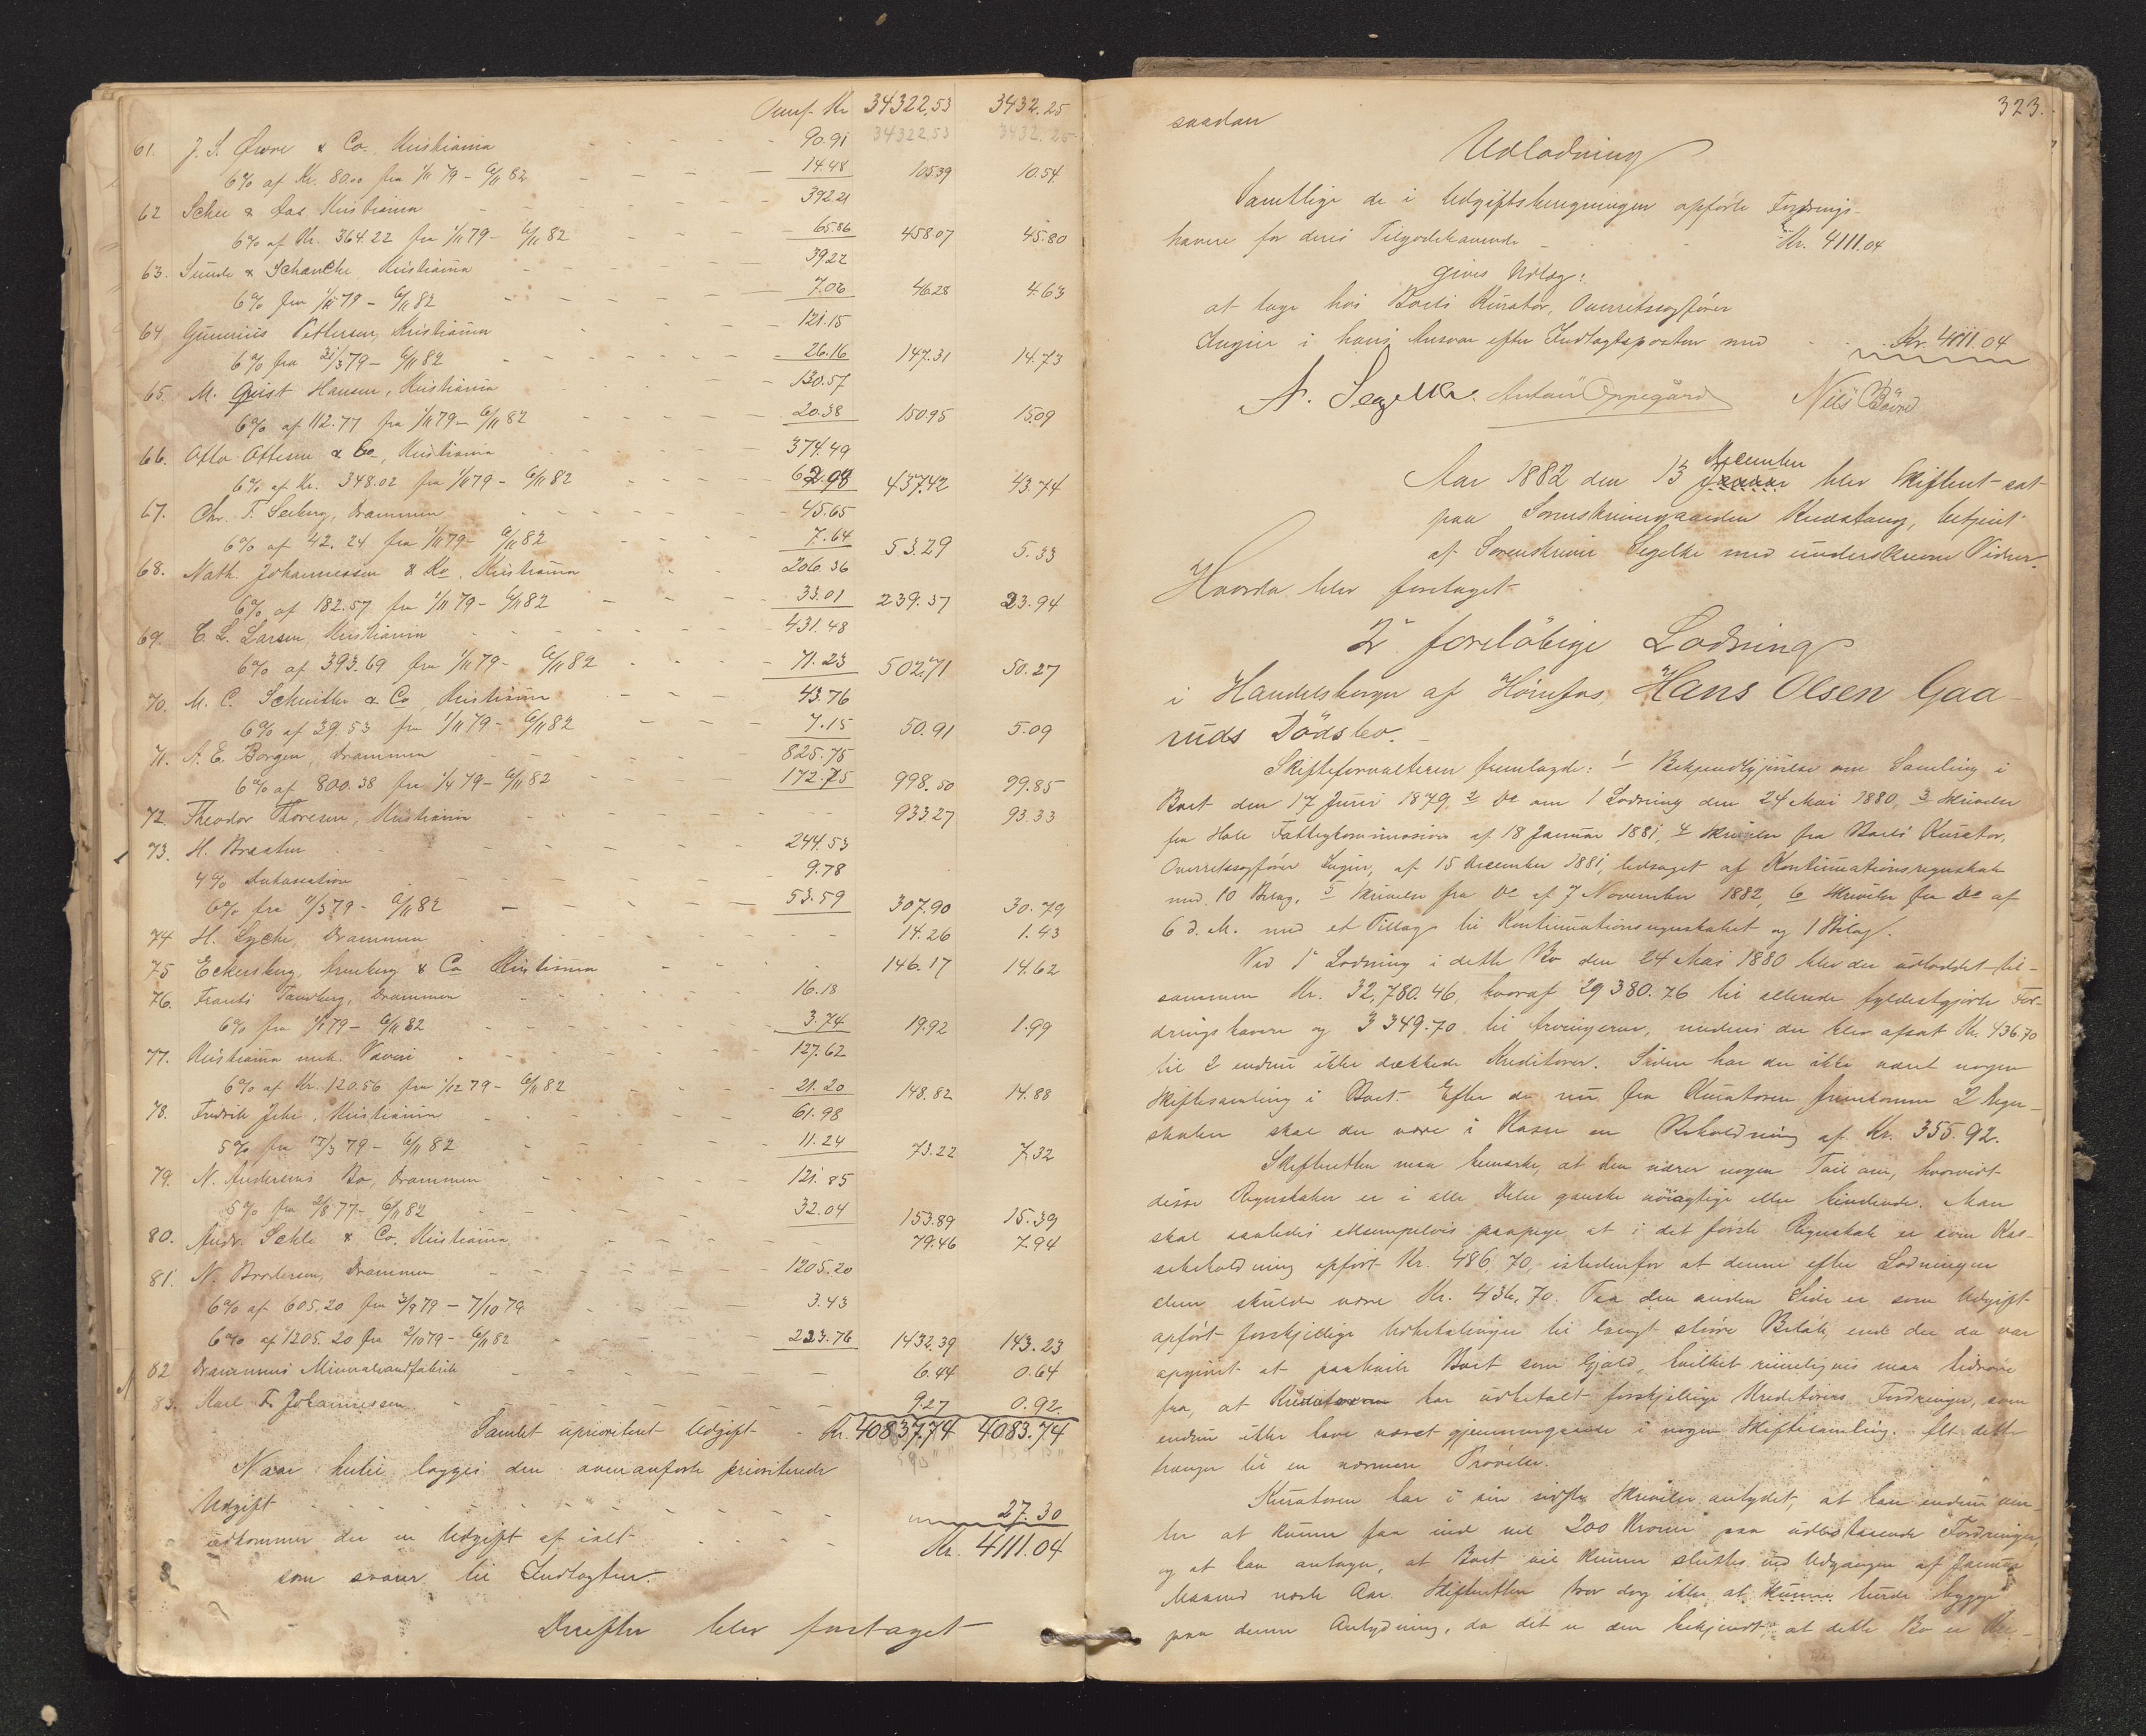 Kr 34322,53 3432.25
34322,53 3432.25
61. & Co. Kristiania 90.91
6% af Kr. 80.00 fra 1/11 79 - 6/11 82 14.48 105.39 10.54
62 Kristiania 392.21
6% af Kr. 364.22 fra 1/11 79 - 6/11 82 65.86 458.07 45.80
63. Sunde & Schanche, Kristiania 39.22
6% fra 1/11 79 - 6/11 82 7.06 46.28 4.63
64 Gunerius Pettersen, Kristiania 121.15
6% fra 31/3 79 - 6/11 82 26.16 147.31 14.73
65 M. Hansen, Kristiania 130.57
6% af 112.77 fra 1/11 79 - 6/11 82 20.38 150.95 15.09
66. Otto Ottesen & Co, Kristiania 374.49
6% af Kr. 348.02 fra 1/11 79 - 6/11 82 437.42 43.74
67. Chr. T. Seeberg, Drammen 45.65
6% af 42.24 fra 1/11 79 - 6/11 82 7.64 53.29 5.33
68. Nath. Johannessen & Ko. Kristiania 206.36
6% af 182.57 fra 1/11 79 - 6/11 82 33.01 239.37 23.94
69. C. L. Larsen, Kristiania 431.48
6% af 393.69 fra 1/11 79 - 6/11 82 71.23 502.71 50.27
70. M. C. Schmitler & Co, Kristiania 43.76
6% af 39.53 fra 1/11 79 - 6/11 82 7.15 50.91 5.09
71. A. E. Borgen, Drammen 825.75
6% af 800.38 fra 79 - 6/11 82 172.75 998.50 99.85
72. Theodor Thoresen, Kristiania 933.27 93.33
73. H. Braaten 244.53
4% 9.78
6% fra 79 - 6/11 82 53.59 307.90 30.79
74 H. Lyche, Drammen 14.26 1.43
75 Eckersberg, & Co Kristiania 146.17 14.62
76. Frants Tandberg, Drammen 16.18
6% fra 79 - 6/11 82 3.74 19.92 1.99
77. Kristiania mek. Væveri 127.62
6% af Kr. 120.56 fra 1/12 79 - 6/11 82 21.20 148.82 14.88
78. Fredrik Kristiania 61.98
5% fra 17/3 79 - 6/11 82 11.24 73.22 7.32
79. N. Andersens Bo, Drammen 121.85
5% fra 77 - 6/11 82 32.04 153.89 15.39
80. Andr. Schle & Co. Kristiania 79.46 7.94
81. N. Brodersen, Drammen 1205.20
6% af 605.20 fra 79 - 7/10 79 3.43
6% af 1205.20 fra 7/10 79 - 6/11 82 223.76 1432.39 143.23
82 Drammens Mineralvandfabrik 6.44 0.64
83. Karl F. Johannessen 9.27 0.92
Samlet uprioriteret Udgift Kr. 40837.74 4083.74
Naar hertil lægges den ovenanførte prioriterede
Udgift 27.30
udkommer der en Udgift af ialt Kr. 4111.04
som svarer til Indtægten.
Derefter blev foretaget
323.
saadan
Udlodning
Samtlige de i Udgiftsberegningen opførte Fordrings-
havere for deres Tilgodehavende Kr. 4111.04
gives Udlæg:
at tage hos Boets Kurator, Overretssagfører
i hans Ansvar efter Indtægtsposten med Kr. 4111.04
A. Segelke. Anton Oppegård Nils
December
Aar 1882 den 13 Januar blev Skifteret sat
paa Sorenskrivergaarden betjent
af Sorenskriver Segelke med underskrevne Vidner.
Hvorda blev foretaget
2den foreløbige Lodning
i Handelsborger af Hønefos, Hans Olsen Gaa-
ruds Dödsbo.
Skifteforvalteren fremlagde: 1 Bekjendtgjørelse om Samling i
Boet den 17 Juni 1879, 2 Do om 1 Lodning den 24 Mai 1880, 3 Skrivelse
fra Hole Fattigkommission af 18 Januar 1881, 4 Skrivelse fra Boets Kurator,
Overretssagfører af 15 December 1881, ledsaget af Kontinuationsregnskab
med 10 Bilag, 5 Skrivelse fra Do af 7 November 1882, 6 Skrivelse fra Do af
6 d. M. med et Tillæg til Kontinuationsregnskabet og 1 Bilag.
Ved 1ste Lodning i dette Bo den 24 Mai 1880 blev der udloddet til-
sammen Kr. 32,780.46, hvoraf 29380.76 til allerede fyldestgjorte For-
dringshavere og 3349.70 til Arvingerne, medens der blev afsat Kr. 436.70
til 2 endnu ikke dækkede Kreditorer. Siden har der ikke været nogen
Skiftesamling i Boet. Efter de nu fra Kuratoren fremkomne 2 Regn-
skaber skal der være i Kasse en Beholdning af Kr. 355.92.
Skifteretten maa bemærke, at den nærer nogen Tvil om, hvorvidt
disse Regnskaber er i alle Dele ganske nöiagtige eller bindende. Man
skal saaledes exempelvis paapege at i det første Regnskab er som Kas-
sebeholdning opført Kr. 486.70 istedenfor at denne efter Lodningen
skulde være Kr. 436.70. Paa den anden Side er som Udgift
opført forskjellige Udbetalinger til langt større Beløb, end der da var
opgivet at paahvile Boet som Gjæld, hvilket rimeligvis maa hidrøre
fra, at Kuratoren har udbetalt forskjellige Kreditorers Fordringer, som
endnu ikke have været gjennemgaaede i nogen Skiftesamling. Alt dette
trænger til en nærmere Prøvelse.
Kuratoren har i sin sidste Skrivelse antydet, at han endnu ven-
ter at kunne faa ind vel 200 Kroner paa udestaaende Fordringer,
og at han antager, at Boet vil kunne sluttes ved Udgangen af Januar
Maaned næste Aar. Skifteretten tror dog ikke at kunne turde bygge
paa denne Antydning, da det er den bekjendt, at dette Bo er